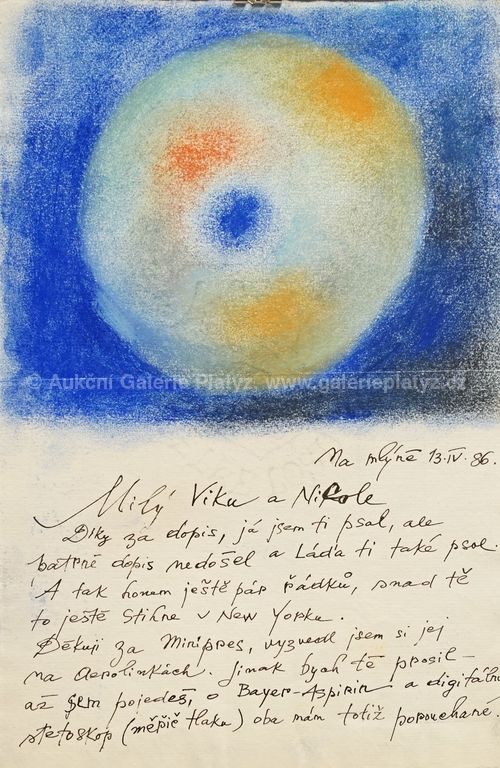 © Aukční Galerie Platýz, www.galerieplatyz.cz
Na mlýně 13.IV.86.
Milý Viku a Nikole
Díky za dopis, já jsem ti psal, ale
patrně dopis nedošel a Láďa ti také psal.
A tak honem ještě pár řádků, snad tě
to ještě stihne v New Yorku.
Děkuji za Minipres, vyzvedl jsem si jej
na Aerolinkách. Jinak bych tě prosil
až sem pojedeš, o Bayer-Aspirin a digitální
stetoskop (měřič tlaku) oba mám totiž porouchané.